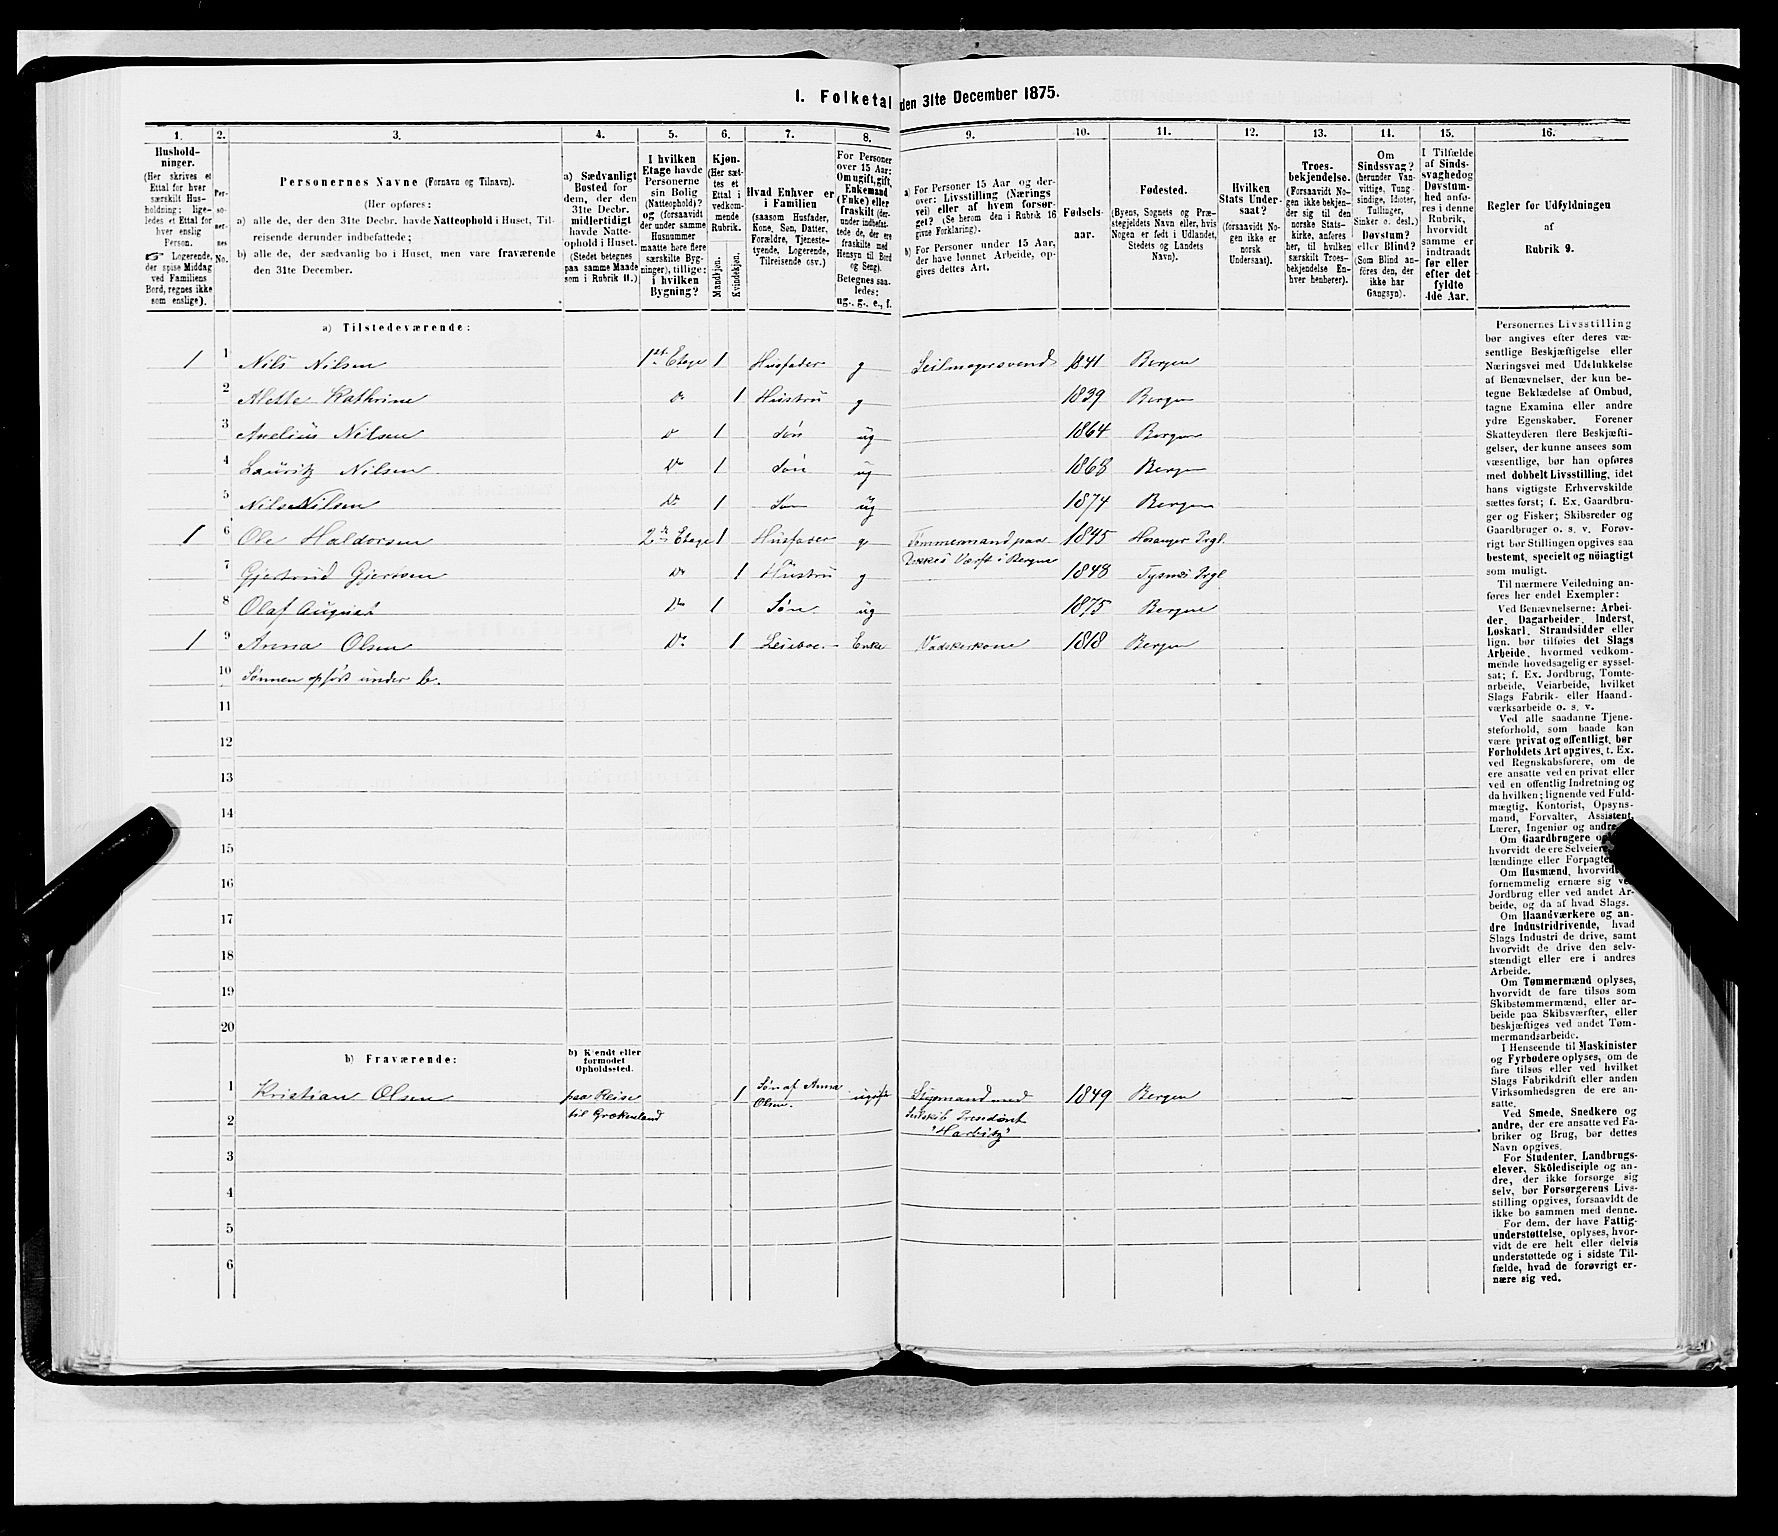 I. Folketal den 31te December 1875.
1. 2. 3. 4. 5. 6. 7. 8. 9. 10. 11. 12. 13. 14. 15. 16.
Hushold-
ninger.
(Her skrives et
Ettal for hver
særskilt Hus-
holdning; lige-
ledes et Ettal for
hver enslig
Person.
Logerende,
der spise Middag
ved Familiens
Bord, regnes ikke
som enslige).
Per-
so-
ner-
nes
No.
Personernes Navne (Fornavn og Tilnavn).
(Her opføres:
a) alle de, der den 31te Decbr. havde Natteophold i Huset, Til-
reisende derunder indbefattede;
b) alle de, der sædvanlig bo i Huset, men vare fraværende
den 31te December.
a) Sædvanligt
Bosted for
dem, der den
31te Decbr.
midlertidigt
havde Natte-
ophold i Huset.
(Stedet betegnes
paa samme Maade
som i Rubrik 11.)
I hvilken
Etage havde
Personerne
sin Bolig
(Natteophold)?
og (forsaavidt
der under samme
Husnummer
maatte høre flere
særskilte Byg-
ninger), tillige:
i hvilken
Bygning?
Kjøn.
(Her sæt-
tes et
Ettal i
vedkom-
mende
Rubrik.)
Mandkjøn.
Kvindekjøn.
Hvad Enhver er
i Familien
(saasom Husfader,
Kone, Søn, Datter,
Forældre, Tjeneste-
tyende, Logerende,
Tilreisende osv.)
For Personer
over 15 Aar:
Om ugift, gift,
Enkemand
(Enke) eller
fraskilt (der-
under indbefat-
tede de, der ere
fraskilte med
Hensyn til Bord
og Seng).
Betegnes saa-
ledes:
ug., g., e., f.
a) For Personer 15 Aar og der-
over: Livsstilling (Nærings
vei) eller af hvem forsør-
get? (Se herom den i Rubrik 16
givne Forklaring).
b) For Personer under 15 Aar,
der have lønnet Arbeide, op-
gives dettes Art.
Fødsels-
aar.
Fødested.
(Byens, Sognets og Præ-
stegjeldets Navn eller, hvis
Nogen er født i Udlandet,
Stedets og Landets
Navn).
Hvilken
Stats Under-
saat?
(forsaavidt No-
gen ikke er
norsk
Undersaat).
Troes-
bekjendelse.
(Forsaavidt No-
gen ikke bekjen-
der sig til den
norske Stats-
kirke, anføres
her, til hvilken
særskilt Troes-
bekjendelse En-
hver henhører).
Om
Sindssvag?
(herunder Van-
vittige, Tung-
sindige, Idioter,
Tullinger,
Sinker o. desl.)
Døvstum?
eller Blind?
(Som Blind an-
føres den, der
ikke har
Gangsyn).
I Tilfælde
af Sinds-
svaghed og
Døvstum-
hed anfø-
res i denne
Rubrik,
hvorvidt
samme er
indtraadt
før eller
efter det
fyldte
4de Aar.
Regler for Udfyldningen
af
Rubrik 9.
a) Tilstedeværende:
1 1 Nils Nilsen 1st Etage 1 Husfader g Seilmagersvend 1841 Bergen
2 Alette Kathrine do 1 Hustru g 1839 Bergen
3 Anelius Nilsen do 1 Søn ug 1864 Bergen
4 Lauritz Nilsen Do 1 Søn ug 1868 Bergen
5 Nils Nilsen Do 1 Søn ug 1874 Bergen
1 6 Ole Haldorsen 2de Etage 1 Husfader g Tømmermand paa 1845 Hosanger Prgl
Værft i Bergen
7 Gjertrud Gjertsen Do 1 Hustru g 1848 Tysnes Prgl
8 Olaf August Do 1 Søn ug 1875 Bergen
1 9 Anna Olsen Do 1 Leieboe Enke Vadskerkone 1818 Bergen
10 Sønnen opført under b.
11
12
13
14
15
16
17
18
19
20
b) Fraværende:
b) Kjendt eller
formodet
Opholdssted.
1 Kristian Olsen paa Reise 1 Søn af Anna ugift Styrmand med 1849 Bergen
til Grækenland Olsen. Præsident
2 "Harbitz"
3
4
5
6
Personernes Livsstilling
bør angives efter deres væ-
sentlige Beskjæftigelse eller
Næringsvei med Udelukkelse
af Benævnelser, der kun be-
tegne Beklædelse af Ombud,
tagne Examina eller andre
ydre Egenskaber. Forener
Skatteyderen flere Beskjæfti-
gelser, der kunne ansees som
væsentlige, bør han opføres
med dobbelt Livsstilling, idet
hans vigtigste Erhvervskilde
sættes først; f. Ex. Gaardbru-
ger og Fisker; Skibsreder og
Gaardbruger o. s. v. Forøv-
rigt bør Stillingen opgives saa
bestemt, specielt og nøiagtigt
som muligt.
Til nærmere Veiledning an-
føres her endel Exempler:
Ved Benævnelserne: Arbei-
der, Dagarbeider, Inderst,
Løskarl, Strandsidder eller
lign. bør tilføies det Slags
Arbeide, hvormed vedkom-
mende hovedsagelig er syssel-
sat; f. Ex. Jordbrug, Tomte-
arbeide, Veiarbeide, hvilket
Slags Fabrik- eller Haand-
værksarbeide o. s. v.
Ved alle saadanne Tjene-
steforhold, som baade kan
være privat og offentligt, bør
Forholdets Art opgives, t. Ex.
ved Regnskabsførere, om de
ere ansatte ved en privat eller
ved en offentlig Indretning og
da hvilken; lignende ved Fuld-
mægtig, Kontorist, Opsyns-
mand, Forvalter, Assistent,
Lærer, Ingeniør og andre.
Om Gaardbrugere
hvorvidt de ere Selveiere,
lændinge eller
Om Husmænd, hvorvidt
fornemmelig ernære sig
Jordbrug eller ved andet Ar-
beide, og da af hvad Slags.
Om Haandværkere og an-
dre Industridrivende, hvad
Slags Industri de drive, samt
hvorvidt de drive den selv-
stændigt eller ere i andres
Arbeide.
Om Tømmermænd oplyses,
hvorvidt de fare tilsøs som
Skibstømmermænd, eller ar-
beide paa Skibsværfter, eller
beskjæftiges ved andet Tøm-
mermandsarbeide.
I Henseende til Maskinister
og Fyrbødere oplyses, om de
fare tilsøs eller ved hvilket
Slags Fabrikdrift eller anden
Virksomhedsgren de ere an-
satte.
Ved Smede, Snedkere og
andre, der ere ansatte ved Fa-
briker og Brug, bør dettes
Navn opgives.
For Studenter, Landbrugs-
elever, Skoledisciple og an-
dre, der ikke forsørge sig
selv, bør Forsørgerens Livs-
stilling opgives, forsaavidt de
ikke bo sammen med denne.
For dem, der have Fattig-
understøttelse, oplyses, hvor-
vidt de ere helt eller delvis
understøttede og i sidste Til-
fælde, hvad de forøvrigt er-
nære sig ved.